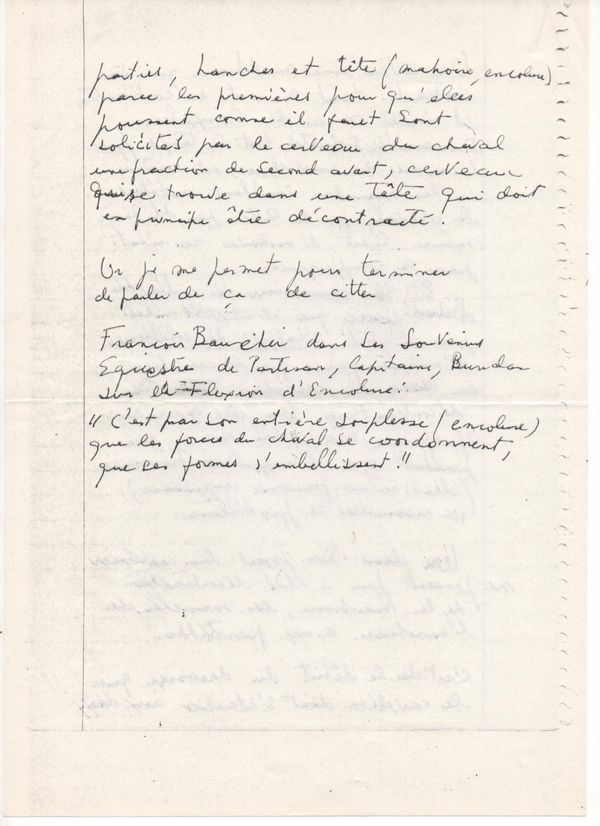 parties, hanches et tête (mahoire, encolure)
parce les premières pour qu'elles
poussent comme il faut sont
solicités par le cerveau du cheval
une fraction de second avant, cerveau
qui se trouve dans une tête qui doit
en principe être décontracté.
Or je me permet pour terminer
de parler de ça de citter
François Baucher dans Les Souvenirs
Equestre de Partisan, Capitaine, Buridan
sur la Flexion d'Encolure:
"C'est par son entière souplesse (encolure)
que les forces du cheval se coordonnent,
que ses formes s'embellissent."